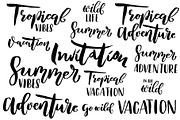 Tropical
VIBES
wild
LIFE
Summer
Tropical
Adventure
Vacation
Invitation
Summer
VIBES
Tropical
VACATION
Summer
ADVENTURE
in the
wild
Adventure
Go wild
VACATION